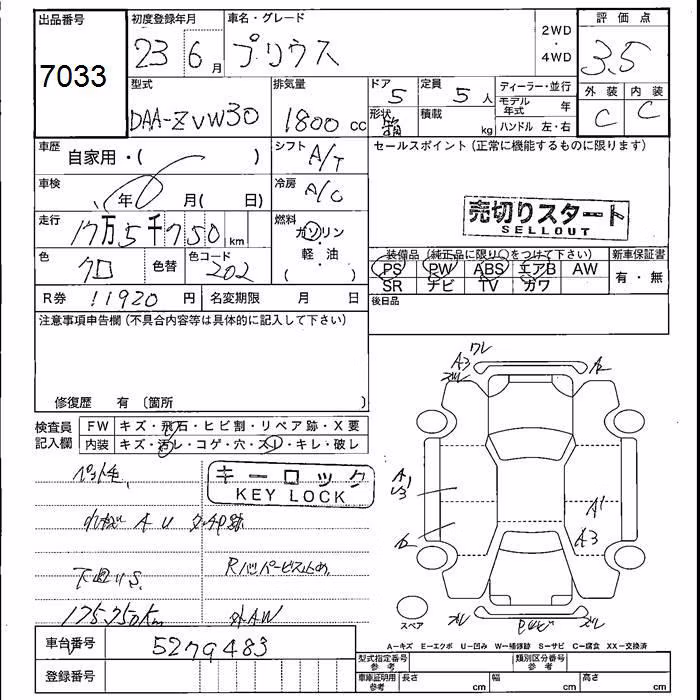 出品番号 初度登録年月 車名・グレード 2WD・4WD 評価点
7033 23 6月 プリウス 3.5
型式 排気量 ドア 5 定員 5人 ディーラー・並行 外装 内装
DAA-ZVW30 1800cc 形状 箱 積載 kg モデル年式 年 C C
ハンドル 左・右
車歴 自家用・( ) シフト A/T セールスポイント (正常に機能するものに限ります)
車検 年 月( 日) 冷房 A/C
売切りスタート
SELLOUT
走行 17万5千750km 燃料 ガソリン・軽・油( )
色 クロ 色替 色コード 202
装備品 (純正品に限り○をつけて下さい) 新車保証書
PS PW ABS エアB AW 有・無
SR ナビ TV カワ
R券 11920円 名変期限 月 日 後日品
注意事項申告欄 (不具合内容等は具体的に記入して下さい)
修復歴 有 (箇所 )
検査員記入欄 FW キズ・飛石・ヒビ割・リペア跡・X要
内装 キズ・汚レ・コゲ・穴・スレ・キレ・破レ
キーロック
KEY LOCK
ペット毛
A U
下廻りS.
175,750km 外AW
ワレ
A3
ズレ
A2
A1
A1
A3
ズレ ズレ
スペア
A-キズ E-エクボ U-凹み W-補修跡 S-サビ C-腐食 XX-交換済
車台番号 5279483
登録番号
型式指定番号 参考 類別区分番号 参考
車庫証明用 参考 長さ cm 幅 cm 高さ cm